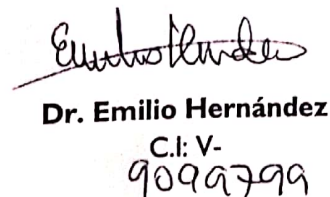 Emilio Hernández
Dr. Emilio Hernández
C.I: V-
9099799